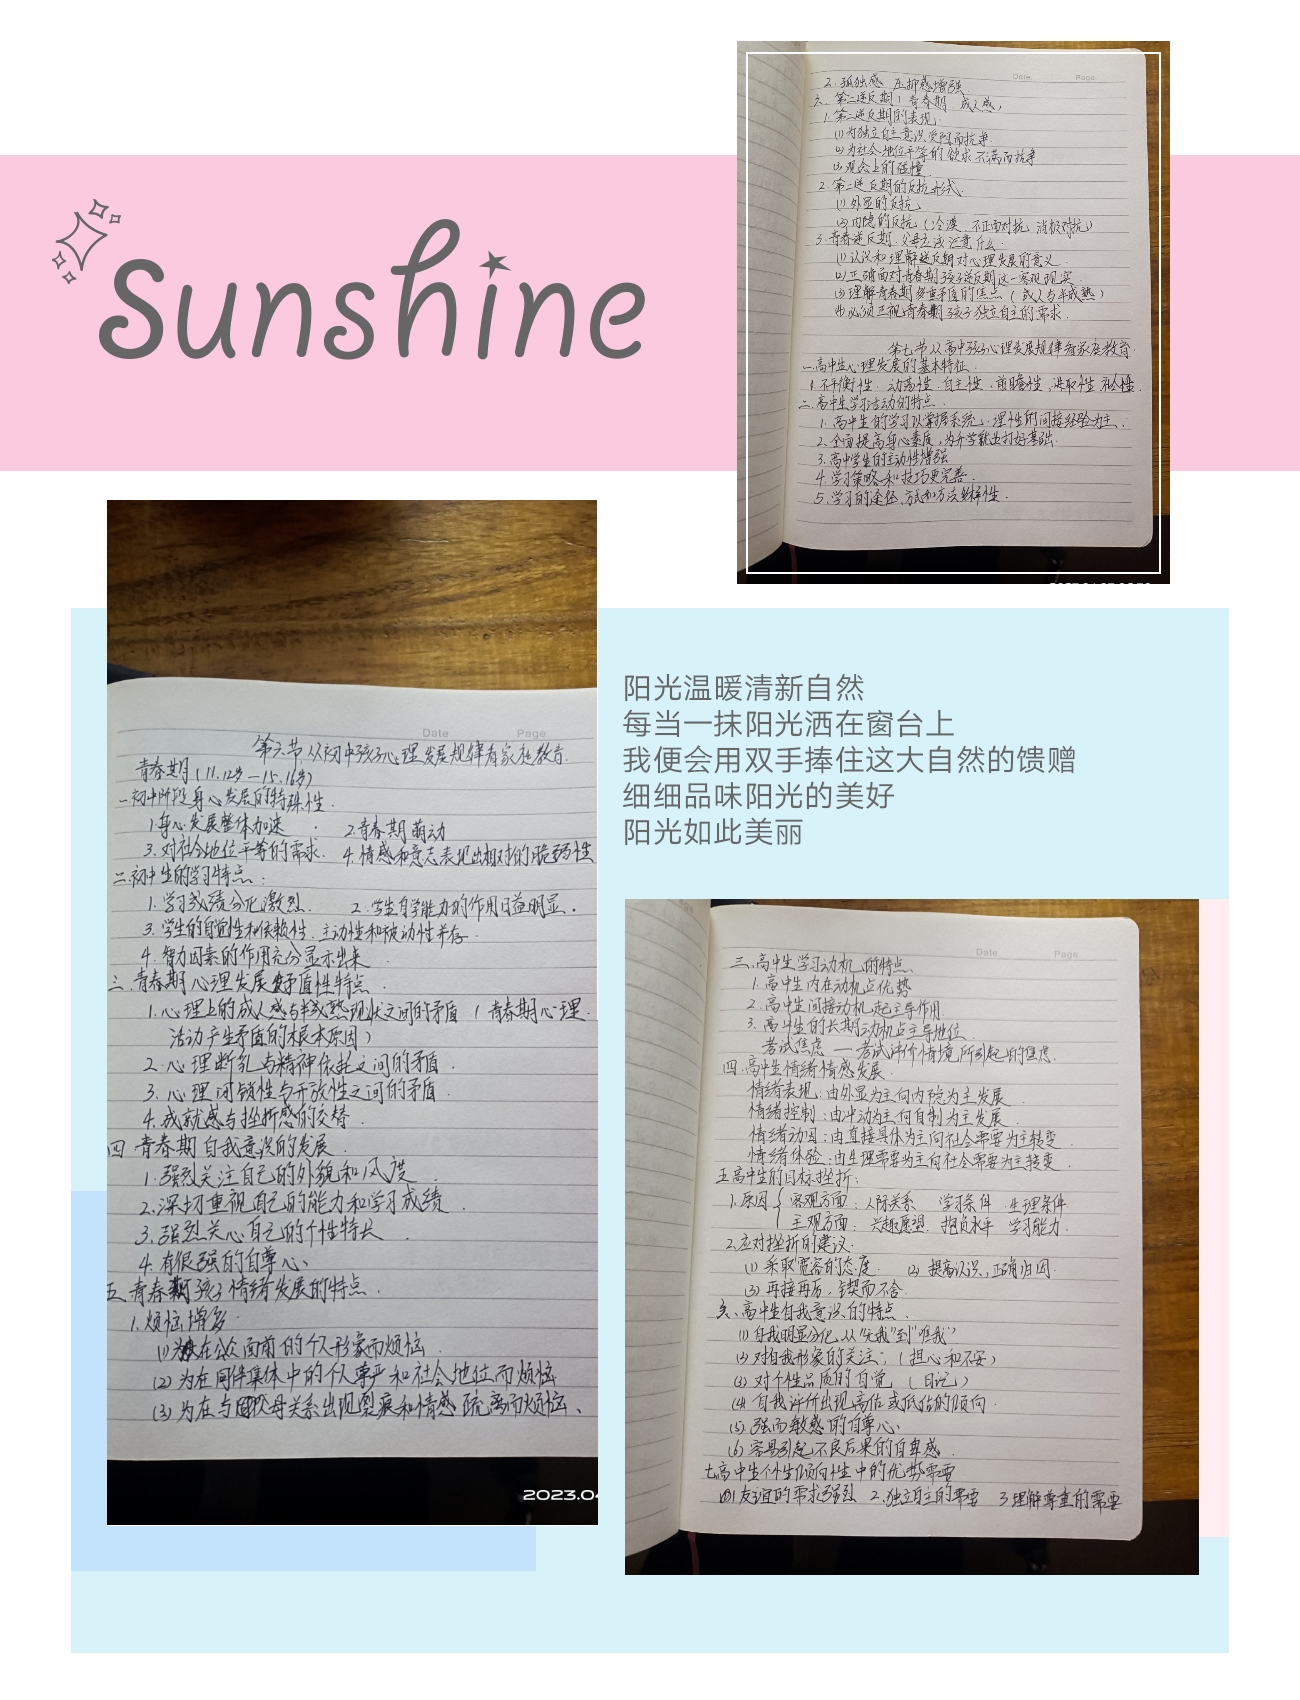 Sunshine
Date Page
2. 孤独感、压抑感增强
六、第二逆反期（青春期、成人感）
1. 第二逆反期的表现
(1) 为独立自主意识受阻而抗争
(2) 为社会地位平等的欲求不满而抗争
(3) 观念上的碰撞
2. 第二逆反期的反抗形式
(1) 外显的反抗
(2) 内隐的反抗（冷漠、不正面对抗、消极对抗）
3. 青春逆反期，父母应该注意什么
(1) 认识和理解逆反期对心理发展的意义
(2) 正确面对青春期孩子逆反期这一客观现实
(3) 理解青春期多重矛盾的焦点（成人与半成熟）
(4) 必须正视青春期孩子独立自主的需求
第七节 从高中孩子心理发展规律看家庭教育
一、高中生心理发展的基本特征
1. 不平衡性、动荡性、自主性、前瞻性、进取性、社会性
二、高中生学习活动的特点
1. 高中生的学习以掌握系统、理性的间接经验为主
2. 全面提高身心素质，为升学就业打好基础
3. 高中学生的主动性增强
4. 学习策略和技巧更完善
5. 学习的途径、方式和方法多样性
Date Page
第六节 从初中孩子心理发展规律看家庭教育
青春期（11、12岁—15、16岁）
一、初中阶段身心发展的特殊性
1. 身心发展整体加速 2. 青春期萌动
3. 对社会地位平等的需求 4. 情感和意志表现出相对的脆弱性
二、初中生的学习特点：
1. 学习成绩分化激烈 2. 学生自学能力的作用日益明显
3. 学生的自觉性和依赖性、主动性和被动性并存
4. 智力因素的作用充分显示出来
三、青春期心理发展矛盾性特点
1. 心理上的成人感与半成熟现状之间的矛盾（青春期心理
活动产生矛盾的根本原因）
2. 心理断乳与精神依托之间的矛盾
3. 心理闭锁性与开放性之间的矛盾
4. 成就感与挫折感的交替
四 青春期自我意识的发展
1. 强烈关注自己的外貌和风度
2. 深切重视自己的能力和学习成绩
3. 强烈关心自己的个性特长
4. 有很强的自尊心
五、青春期孩子情绪发展的特点
1. 烦恼增多
(1) 为在公众面前的个人形象而烦恼
(2) 为在同伴集体中的个人尊严和社会地位而烦恼
(3) 为在与父母关系出现裂痕和情感疏离而烦恼
2023.04
阳光温暖清新自然
每当一抹阳光洒在窗台上
我便会用双手捧住这大自然的馈赠
细细品味阳光的美好
阳光如此美丽
Date Page
三、高中生学习动机的特点
1. 高中生内在动机占优势
2. 高中生间接动机起主导作用
3. 高中生的长期动机占主导地位
考试焦虑——考试评价情境所引起的焦虑
四、高中生情绪情感发展
情绪表现：由外显为主向内隐为主发展
情绪控制：由冲动为主向自制为主发展
情绪动因：由直接具体为主向社会需要为主转变
情绪体验：由生理需要为主向社会需要为主转变
五 高中生的目标挫折：
1. 原因 { 客观方面：人际关系 学习条件 生理条件
主观方面：兴趣愿望 抱负水平 学习能力
2. 应对挫折的建议
(1) 采取宽容的态度 (2) 提高认识，正确归因
(3) 再接再厉，锲而不舍
六、高中生自我意识的特点
(1) 自我明显分化，从“先我”到“唯我”
(2) 对自我形象的关注；（担心和不安）
(3) 对个性品质的自觉（日记）
(4) 自我评价出现高估或低估的倾向
(5) 强而敏感的自尊心
(6) 容易引起不良后果的自卑感
七 高中生个性倾向性中的优势需要
1 友谊的需求强烈 2. 独立自主的需要 3 理解尊重的需要